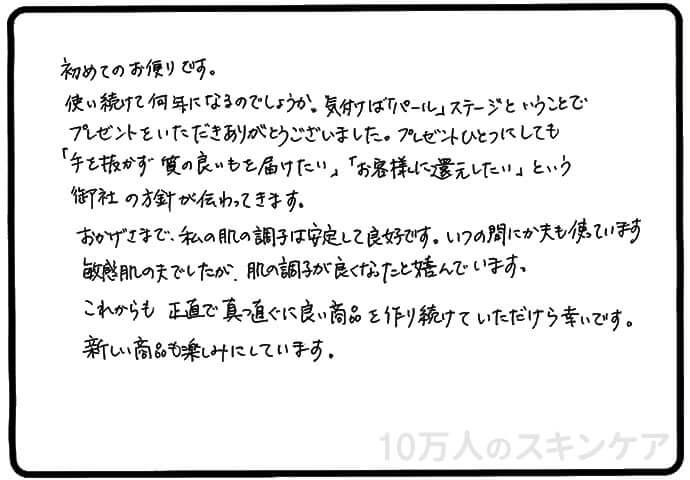 初めてのお便りです。
使い続けて何年になるのでしょうか。気付けば「パール」ステージということで
プレゼントをいただきありがとうございました。プレゼントひとつにしても
「手を抜かず 質の良いもを届けたい」「お客様に還元したい」という
御社の方針が伝わってきます。
おかげさまで、私の肌の調子は安定して良好です。いつの間にか夫も使っています
敏感肌の夫でしたが、肌の調子が良くなったと喜んでいます。
これからも 正直で真っ直ぐに良い商品を作り続けていただけたら幸いです。
新しい商品も楽しみにしています。
10万人のスキンケア